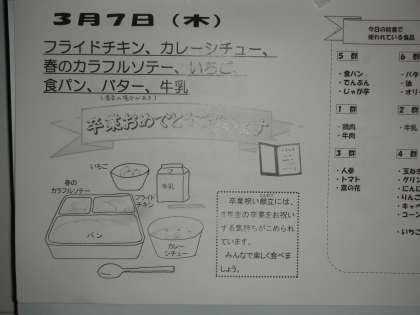 3月7日（木）
フライドチキン、カレーシチュー、
春のカラフルソテー、いちご、
食パン、バター、牛乳
卒業おめでとうございます
いちご
春の
カラフルソテー
牛乳
フライド
チキン
パン
カレー
シチュー
卒業祝い献立には、
6年生の卒業をお祝い
する気持ちがこめられ
ています。
みんなで楽しく食べま
しょう。
今日の給食で
使われている食品
5 群
・食パン
・でんぷん
・じゃが芋
6 群
・バタ
・油
・オリ
1 群
・鶏肉
・牛肉
2 群
・牛乳
3 群
・人参
・トマト
・菜の花
4 群
・玉ね
・グリン
・にんに
・りんこ
・キャベ
・コーン
・いちご